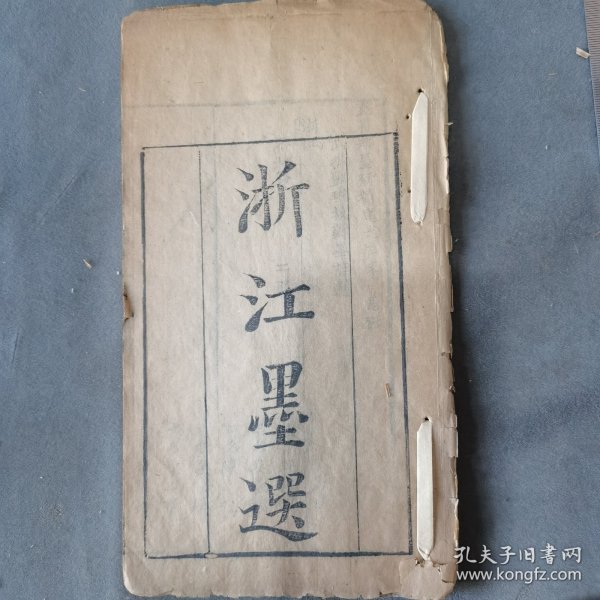 浙江墨選
孔夫子旧書网
www.kongfz.com